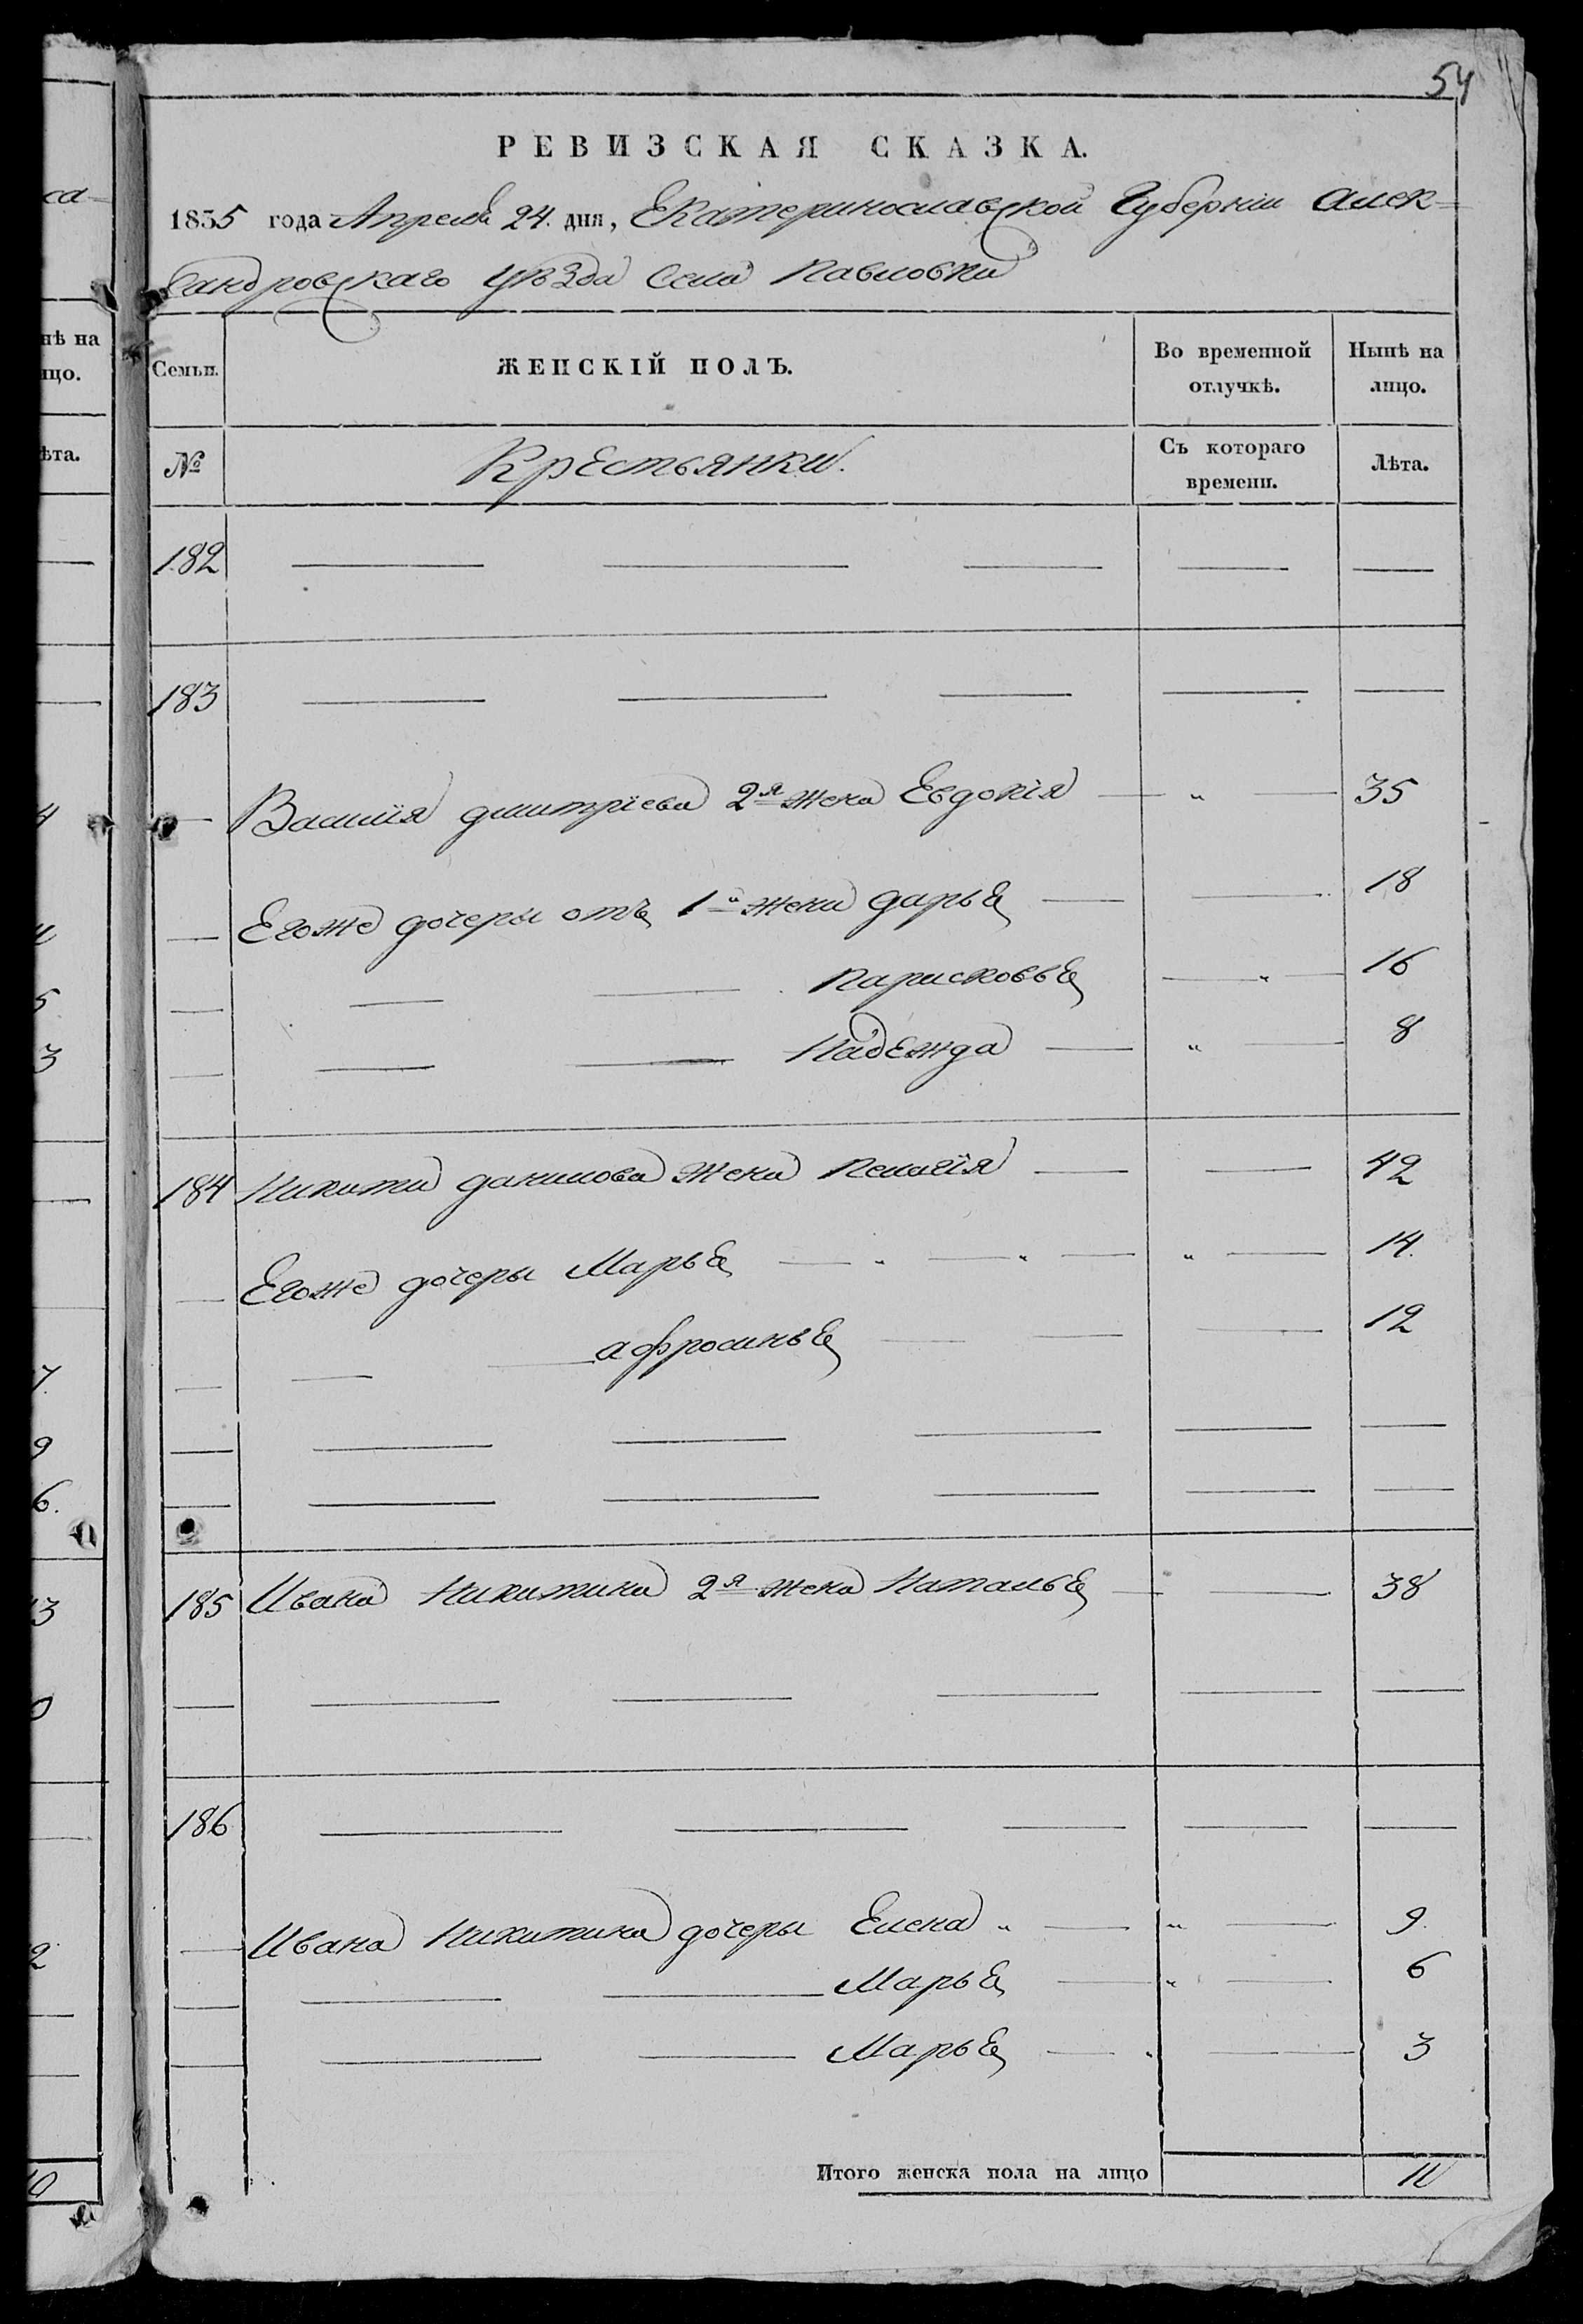 54
РЕВИЗСКАЯ СКАЗКА.
1835 года Апреля 24. дня, Екатеринославской Губерніи Алек-
сандровскаго Уѣзда Села Павловки
Семьи. ЖЕНСКІЙ ПОЛЪ. Во временной отлучкѣ. Нынѣ на лицо.
№ Крестьянки. Съ котораго времени. Лѣта.
182
183
Василія дмитріева 2я жена Евдокія 35
Егоже дочеры отъ 1й жены дарья 18
Парисковья 16
Надежда 8
184 Никиты данилова жена Пелагія 42
Егоже дочеры Марья 14.
афросинья 12
185 Ивана Никитина 2я жена Наталья 38
186
Ивана Никитина дочеры Елена 9.
Марья 6
Марья 3
Итого женска пола на лицо 11